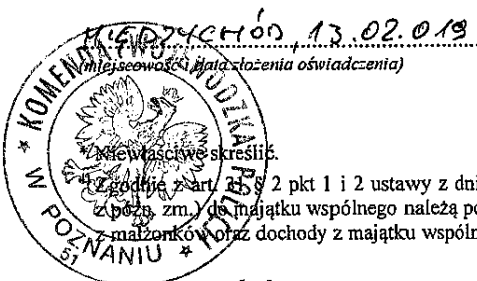 MIĘDZYCHÓD, 13.02.019
(miejscowość i data złożenia oświadczenia)
KOMENDA WOJEWÓDZKA POLICJI
W POZNANIU
51
* Niewłaściwe skreślić.
Zgodnie z art. § 2 pkt 1 i 2 ustawy z dni
z późn. zm.) do majątku wspólnego należą po
z małżonków oraz dochody z majątku wspóln